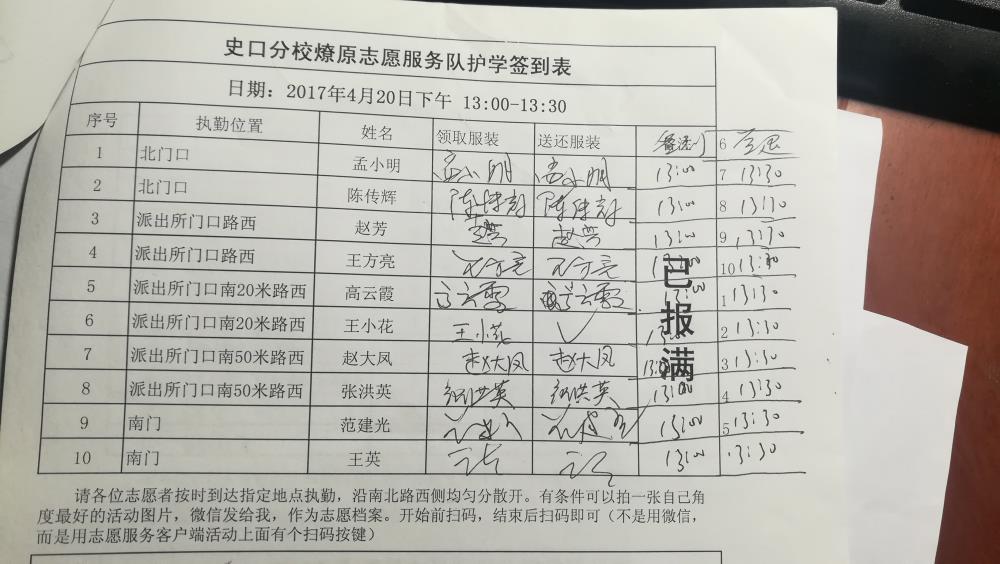 史口分校燎原志愿服务队护学签到表
日期：2017年4月20日下午 13:00-13:30
序号 执勤位置 姓名 领取服装 送还服装 6
1 北门口 孟小明 孟小明 孟小明 13:00 7 13:30
2 北门口 陈传辉 陈传辉 陈传辉 13:00 8 13:30
3 派出所门口路西 赵芳 赵芳 赵芳 13:00 9 13:30
4 派出所门口路西 王方亮 王方亮 王方亮 13:00 10 13:30
5 派出所门口南20米路西 高云霞 高云霞 高云霞 13:00 1 13:30
6 派出所门口南20米路西 王小花 王小花 ✓ 13:00 2 13:30
7 派出所门口南50米路西 赵大凤 赵大凤 赵大凤 13:00 3 13:30
8 派出所门口南50米路西 张洪英 张洪英 张洪英 13:00 4 13:30
9 南门 范建光 13:00 5 13:30
10 南门 王英 13:00 13:30
已报满
请各位志愿者按时到达指定地点执勤，沿南北路西侧均匀分散开。有条件可以拍一张自己角
度最好的活动图片，微信发给我，作为志愿档案。开始前扫码，结束后扫码即可（不是用微信，
而是用志愿服务客户端活动上面有个扫码按键）